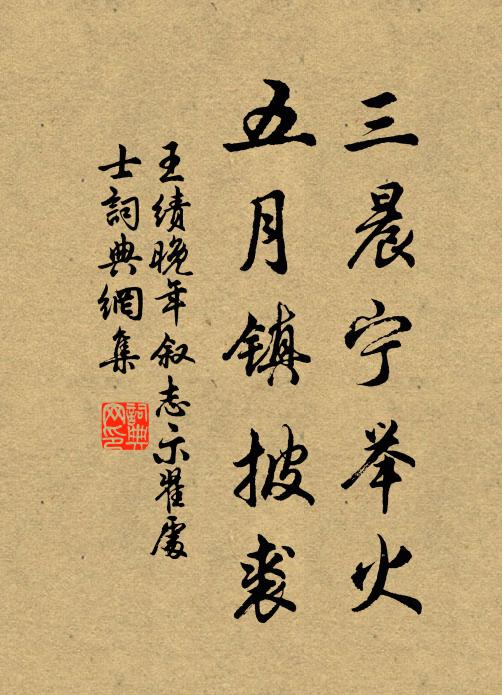 三晨宁举火
五月镇披裘
王绩晚年叙志示翟處
士詞典網集
詞典網印